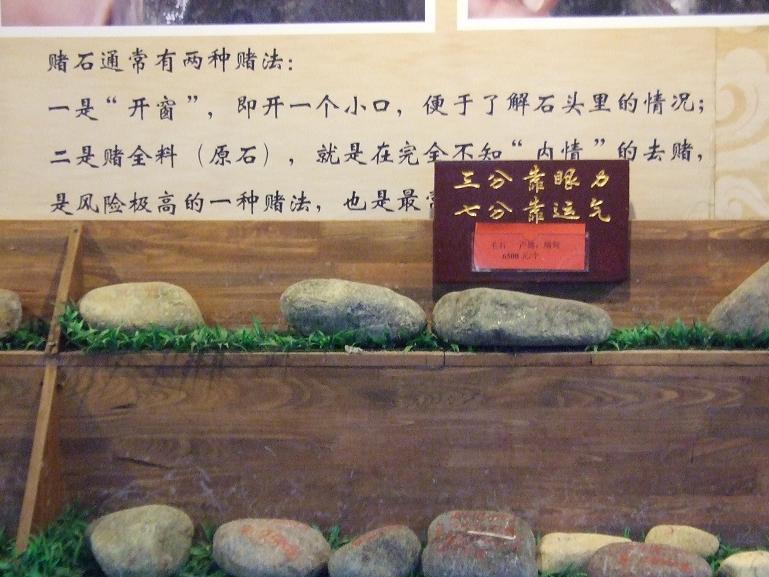 赌石通常有两种赌法：
一是“开窗”，即开一个小口，便于了解石头里的情况；
二是赌全料（原石），就是在完全不知“内情”的去赌，
是风险极高的一种赌法，也是最
三分靠眼力
七分靠运气
毛石 产地：缅甸
6500元/个